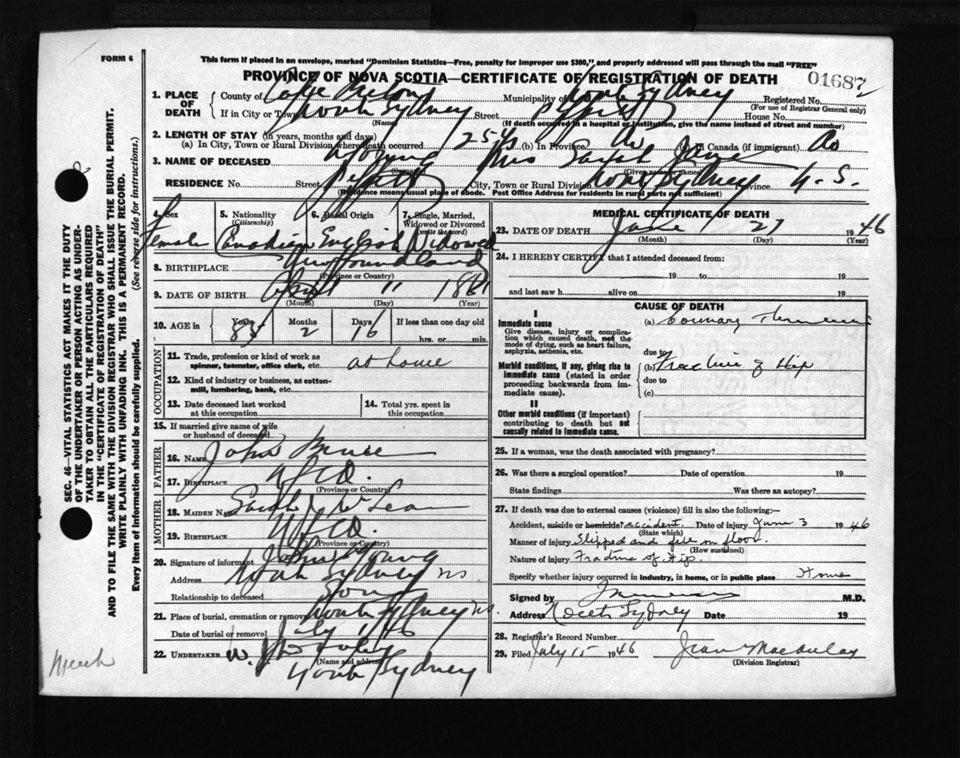 FORM 6
This form if placed in an envelope, marked "Dominion Statistics—Free, penalty for improper use $300," and properly addressed will pass through the mail "FREE"
PROVINCE OF NOVA SCOTIA—CERTIFICATE OF REGISTRATION OF DEATH
01687
SEC. 46—VITAL STATISTICS ACT MAKES IT THE DUTY
OF THE UNDERTAKER OR PERSON ACTING AS UNDER-
TAKER TO OBTAIN ALL THE PARTICULARS REQUIRED
IN THE "CERTIFICATE OF REGISTRATION OF DEATH"
AND TO FILE THE SAME WITH THE DIVISION REGISTRAR WHO SHALL ISSUE THE BURIAL PERMIT.
WRITE PLAINLY WITH UNFADING INK. THIS IS A PERMANENT RECORD.
Every item of information should be carefully supplied. (See reverse side for instructions.)
1. PLACE OF DEATH
County of Cape Breton Municipality of North Sydney Registered No.
(For use of Registrar General only)
If in City or Town North Sydney Street House No.
(Name) (If death occurred in a hospital or institution, give the name instead of street and number)
2. LENGTH OF STAY (in years, months and days)
(a) In City, Town or Rural Division where death occurred 25 yrs (b) In Province do (c) In Canada (if immigrant) do
3. NAME OF DECEASED Young Mrs Sarah Jane
(Given names)
RESIDENCE No. Street City, Town or Rural Division North Sydney Province N.S.
(Residence means usual place of abode. Post Office Address for residents in rural parts not sufficient)
4. Sex Female
5. Nationality (Citizenship) Canadian
6. Racial Origin English
7. Single, Married, Widowed or Divorced (write the word) Widowed
8. BIRTHPLACE Newfoundland
(Province or Country)
9. DATE OF BIRTH April 11 1861
(Month) (Day) (Year)
10. AGE in Years 85 Months 2 Days 16 If less than one day old
hrs. or min.
OCCUPATION
11. Trade, profession or kind of work as spinner, teamster, office clerk, etc. at home
12. Kind of industry or business, as cotton-mill, lumbering, bank, etc.
13. Date deceased last worked at this occupation
14. Total yrs. spent in this occupation
15. If married give name of wife or husband of deceased
FATHER
16. Name John
17. Birthplace Nfld.
(Province or Country)
MOTHER
18. Maiden Name Sarah McLean
19. Birthplace Nfld.
(Province or Country)
20. Signature of informant John Young
Address North Sydney NS.
Relationship to deceased Son
21. Place of burial, cremation or removal North Sydney NS.
Date of burial or removal July 1 46
22. UNDERTAKER W.
(Name and address)
North Sydney
MEDICAL CERTIFICATE OF DEATH
23. DATE OF DEATH June 27 1946
(Month) (Day) (Year)
24. I HEREBY CERTIFY that I attended deceased from:
19 to 19
and last saw h alive on 19
CAUSE OF DEATH
I
Immediate cause
Give disease, injury or complication which caused death, not the mode of dying, such as heart failure, asphyxia, asthenia, etc.
(a) Coronary
due to
Morbid conditions, if any, giving rise to immediate cause (stated in order proceeding backwards from immediate cause).
(b) Fracture of Hip
due to
(c)
II
Other morbid conditions (if important) contributing to death but not causally related to immediate cause.
25. If a woman, was the death associated with pregnancy?
26. Was there a surgical operation? Date of operation 19
State findings Was there an autopsy?
27. If death was due to external causes (violence) fill in also the following:-
Accident, suicide or homicide? accident. Date of injury June 3 1946
(State which)
Manner of injury Slipped and fell on floor.
(How sustained)
Nature of injury Fracture of Hip.
Specify whether injury occurred in industry, in home, or in public place Home
Signed by M.D.
Address North Sydney Date 19
28. Registrar's Record Number
29. Filed July 15 1946 Jean MacAulay
(Division Registrar)